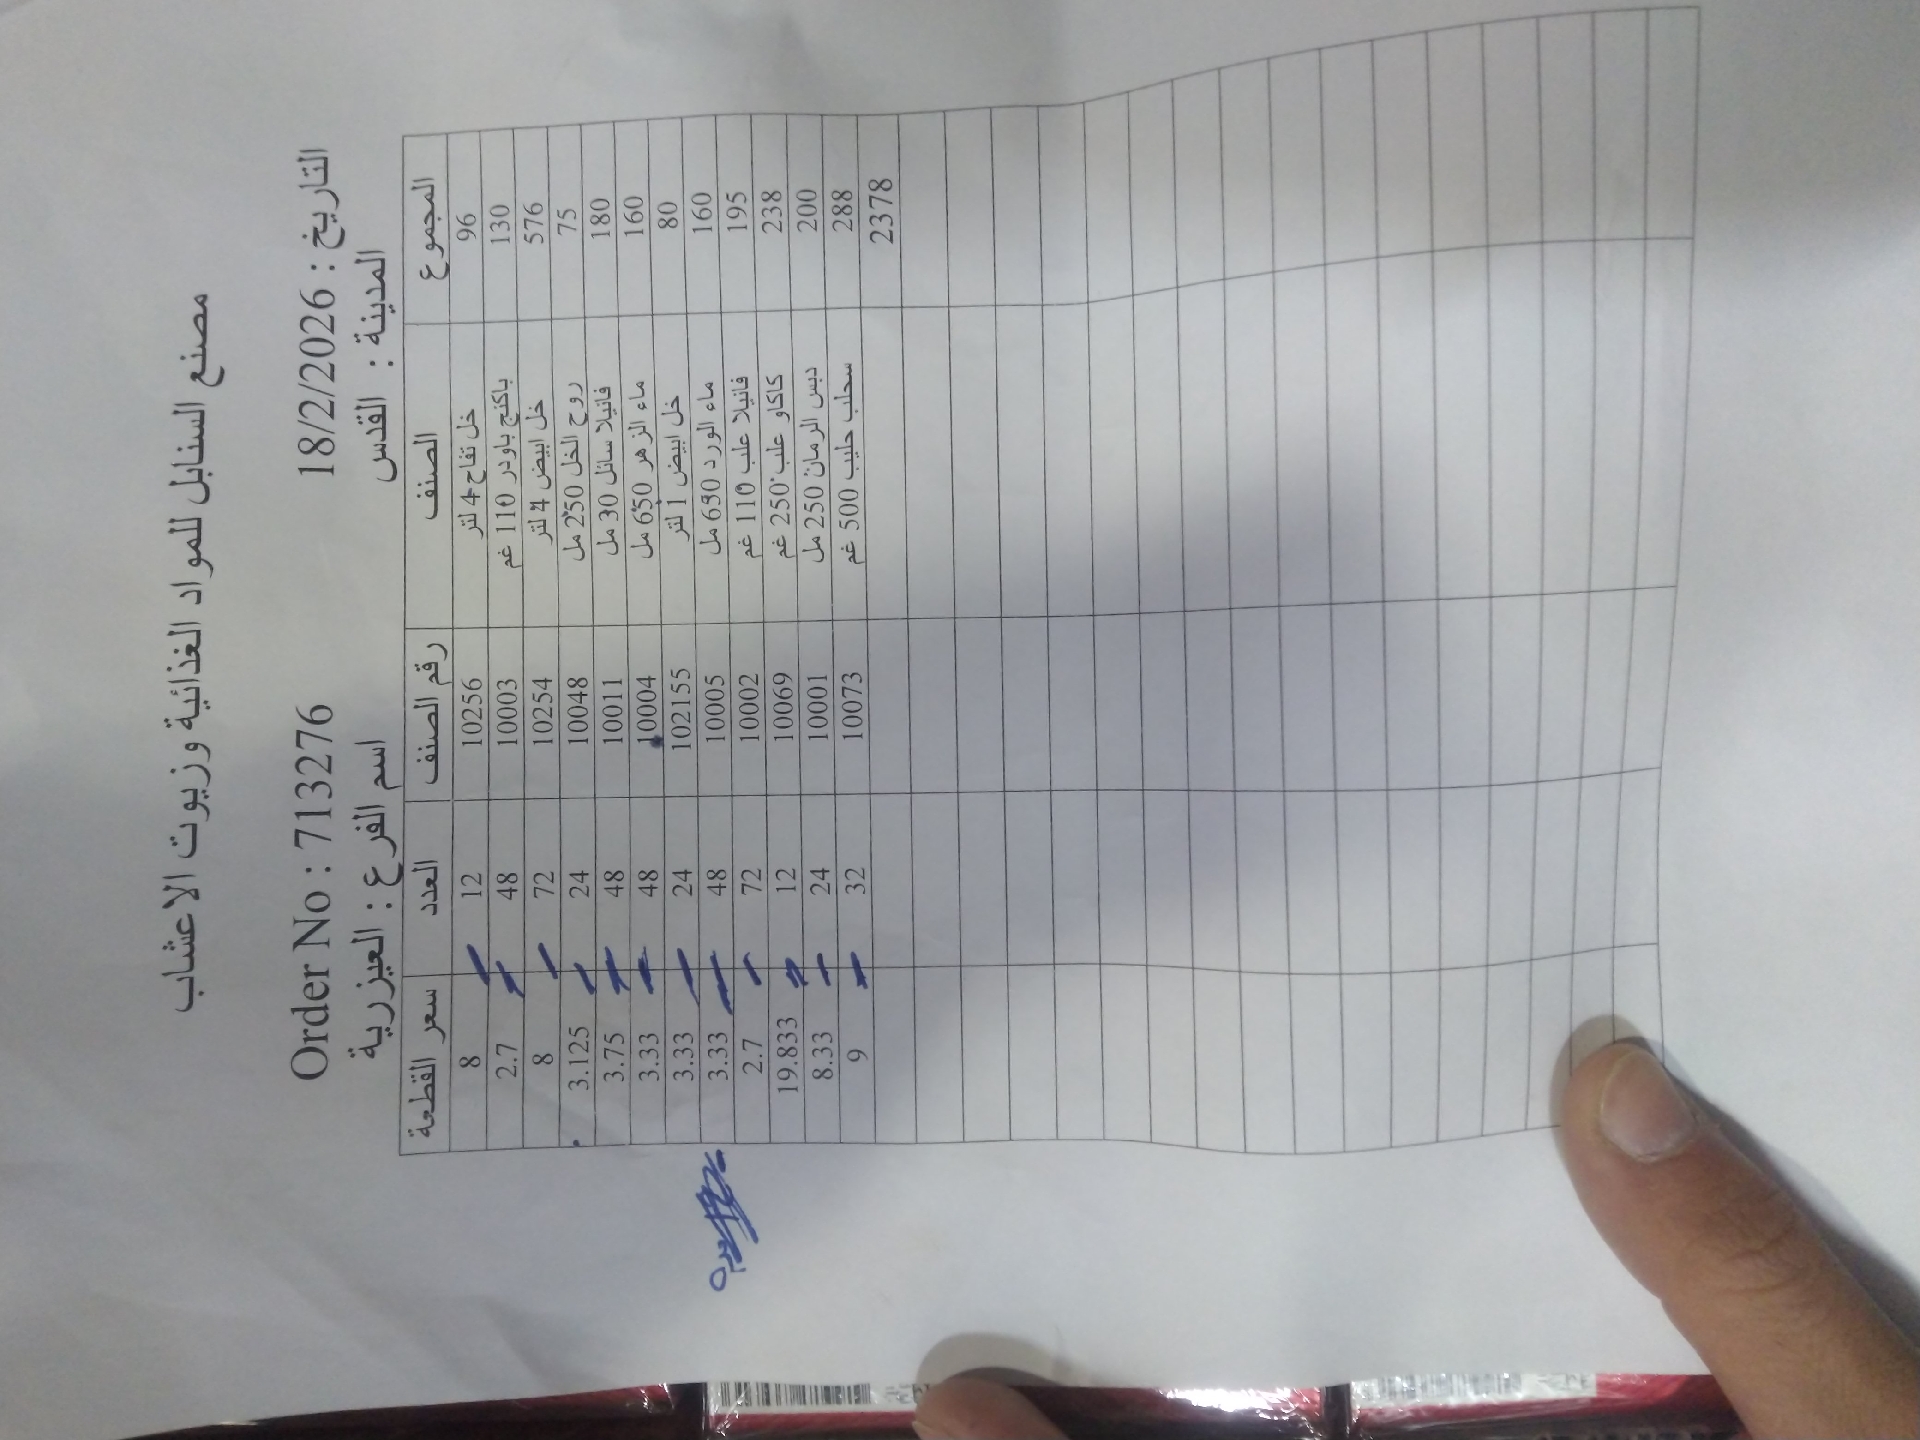 مصنع السنابل للمواد الغذائية وزيوت الاعشاب
التاريخ : 18/2/2026 Order No : 713276
المدينة : القدس اسم الفرع : العيزرية
المجموع الصنف رقم الصنف العدد سعر القطعة
96 خل تفاح 4 لتر 10256 12 8
130 باكنج باودر 110 غم 10003 48 2.7
576 خل ابيض 4 لتر 10254 72 8
75 روح الخل 250 مل 10048 24 3.125
180 فانيلا سائل 30 مل 10011 48 3.75
160 ماء الزهر 650 مل 10004 48 3.33
80 خل ابيض 1 لتر 102155 24 3.33
160 ماء الورد 650 مل 10005 48 3.33
195 فانيلا علب 110 غم 10002 72 2.7
238 كاكاو علب 250 غم 10069 12 19.833
200 دبس الرمان 250 مل 10001 24 8.33
288 سحلب حليب 500 غم 10073 32 9
2378